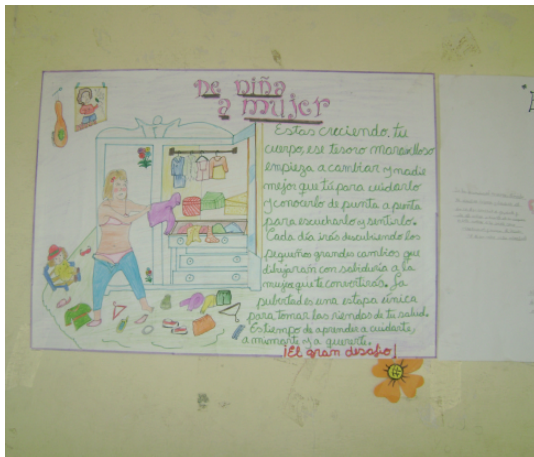 De niña
a mujer
Estas creciendo, tu
cuerpo, ese tesoro maravilloso
empieza a cambiar y nadie
mejor que tú para cuidarlo
y conocerlo de punta a punta
para escucharlo y sentirlo.
Cada día irás descubriendo los
pequeños grandes cambios que
dibujarán con sabiduría a la
mujer que te convertirás. La
pubertad es una etapa única
para tomar las riendas de tu salud.
Es tiempo de aprender a cuidarte,
a mimarte y a quererte.
¡El gran desafío!